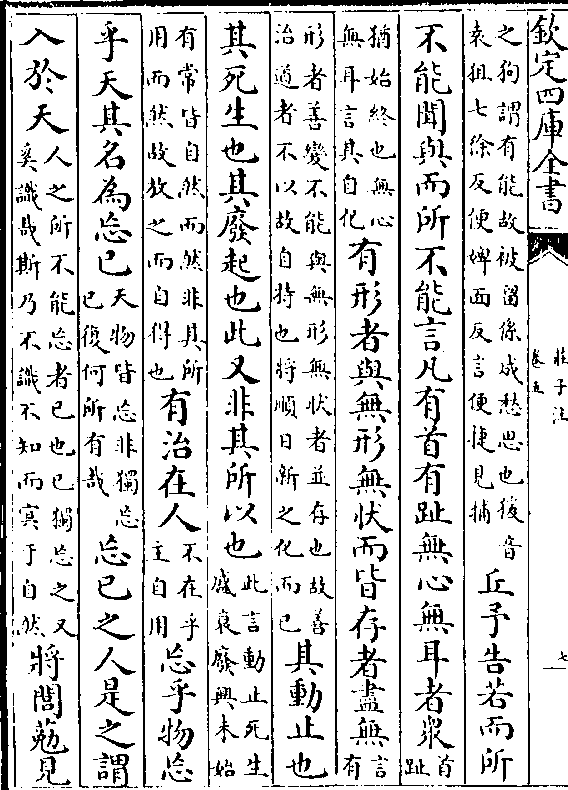 欽定四庫全書
莊子注
卷五
七
之狗謂有能故被留係成愁思也猨音
袁狙七徐反便婢面反言便捷見捕
丘予告若而所
不能聞與而所不能言凡有首有趾無心無耳者衆
首
趾
猶始終也無心
無耳言其自化
有形者與無形無狀而皆存者盡無
言
有
形者善變不能與無形無狀者並存也故善
治道者不以故自持也將順日新之化而已
其動止也
其死生也其廢起也此又非其所以也
此言動止死生
盛衰廢興未始
有常皆自然而然非其所
用而然故放之而自得也
有治在人
不在乎
主自用
忘乎物忘
乎天其名為忘已
天物皆忘非獨忘
已復何所有哉
忘已之人是之謂
入於天
人之所不能忘者已也已獨忘之又
奚識哉斯乃不識不知而冥于自然
將閭葂見